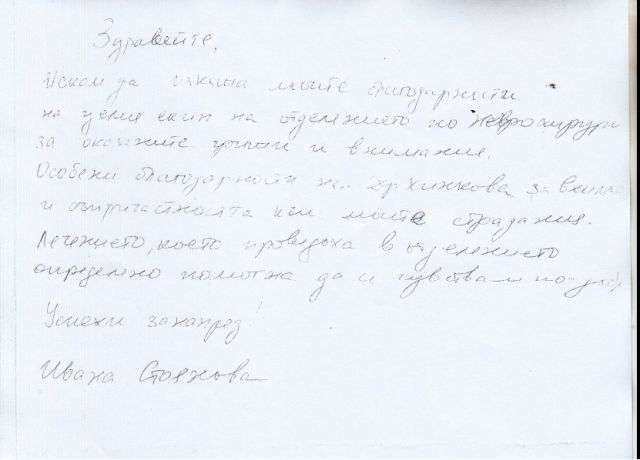 Здравейте,
Искам да изкажа моите благодарности
на целия екип на отделението по неврохирургия
за оказаните грижи и внимание.
Особени благодарности на Др Хинкова за
и съпричастността към моите страдания.
Лечението, което проведоха в отделението
определено помогна да се чувствам по-
Успехи занапред!
Ивана Стоянова